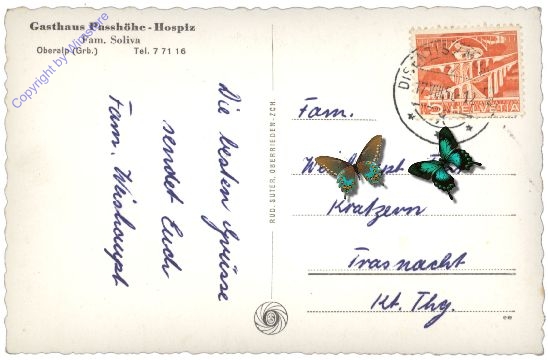 Gasthaus Passhöhe - Hospiz
Fam. Soliva
Oberalp (Grb.) Tel. 7 71 16
Copyright by Wiaustore
Die besten Grüsse
sendet Euch
Fam.
RUD. SUTER, OBERRIEDEN-ZCH.
HELVETIA
5
Fam.
Kratzern
Frasnacht
Kt. Thg.